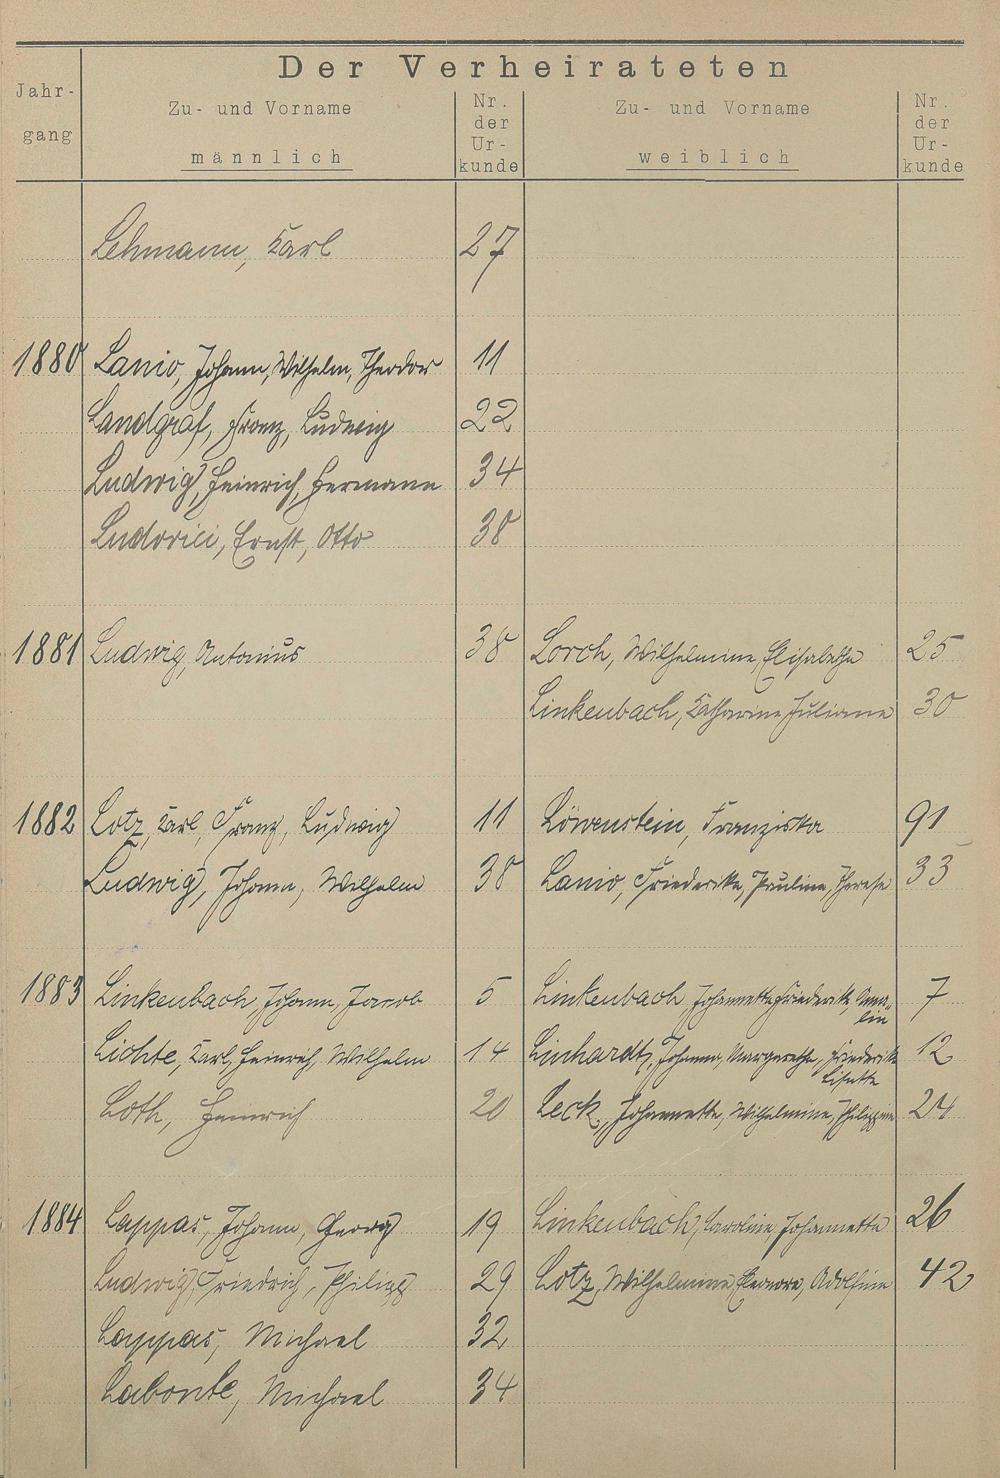 Der Verheirateten
Jahr-
gang
Zu- und Vorname
männlich
Nr.
der
Ur-
kunde
Zu- und Vorname
weiblich
Nr.
der
Ur-
kunde
Lehmann, Karl 27
1880 Lanio, Johann, Wilhelm, Theodor 11
Landgraf, Franz, Ludwig 22
Ludwig, Heinrich, Hermann 34
Ludovici, Ernst, Otto 38
1881 Ludwig, Antonius 38 Lorch, Wilhelmine, Elisabethe 25
Linkenbach, Katharine, Juliane 30
1882 Lotz, Karl, Franz, Ludwig 11 Löwenstein, Franziska 91
Ludwig, Johann, Wilhelm 38 Lanio, Friederike, Pauline, Therese 33
1883 Linkenbach, Johann, Jacob 5 Linkenbach, Johannette Friederik, 7
Lichte, Karl, Heinrich, Wilhelm 14 Linhardt, Johanna, Margarethe, Friederike 12
Lisette
Loth, Heinrich 20 Leck, Johannette, Wilhelmine, Philippine 24
1884 Lappas, Johann, Georg 19 Linkenbach, Caroline, Johannette 26
Ludwig, Friedrich, Philipp 29 Lotz, Wilhelmine, Eleonore, Adolfine 42
Lappas, Michael 32
Labonte, Michael 34